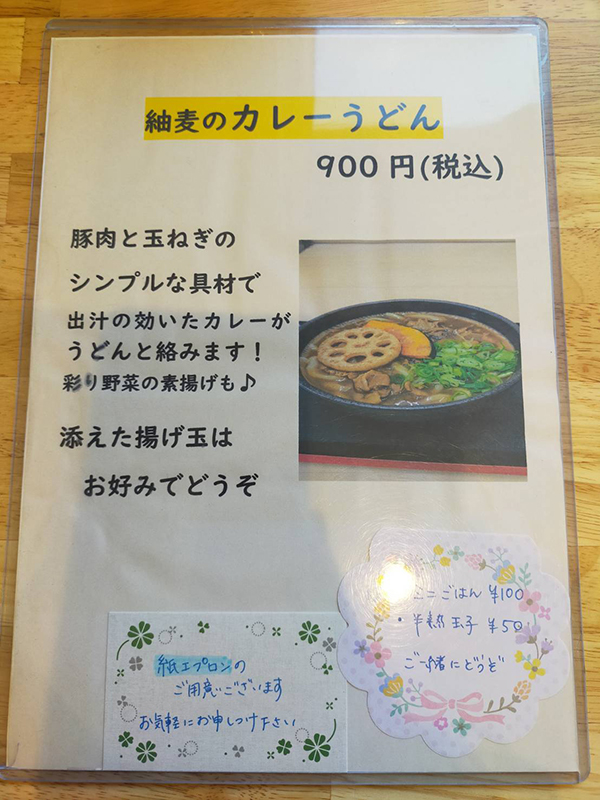 紬麦のカレーうどん
900円(税込)
豚肉と玉ねぎの
シンプルな具材で
出汁の効いたカレーが
うどんと絡みます！
彩り野菜の素揚げも♪
添えた揚げ玉は
お好みでどうぞ
ミニごはん ¥100
・半熟玉子 ¥50
ご一緒にどうぞ
紙エプロンの
ご用意ございます
お気軽にお申しつけ下さい